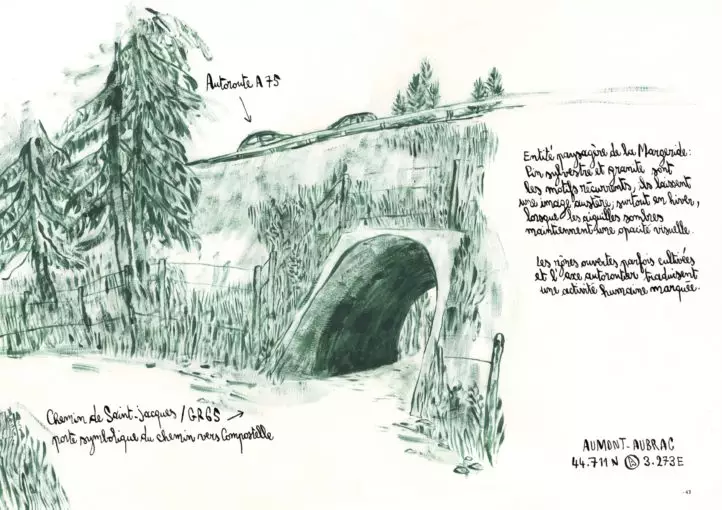 Autoroute A75
Entité paysagère de la Margeride :
Pin sylvestre et granite sont
les motifs récurrents, ils laissent
une image austère, surtout en hiver,
lorsque les aiguilles sombres
maintiennent une opacité visuelle.
Les rares ouvertes parfois cultivées
et l'axe autoroutier traduisent
une activité humaine marquée.
Chemin de Saint-Jacques / GR65 →
porte symbolique du chemin vers Compostelle
AUMONT-AUBRAC
44.711N 3.273E
43